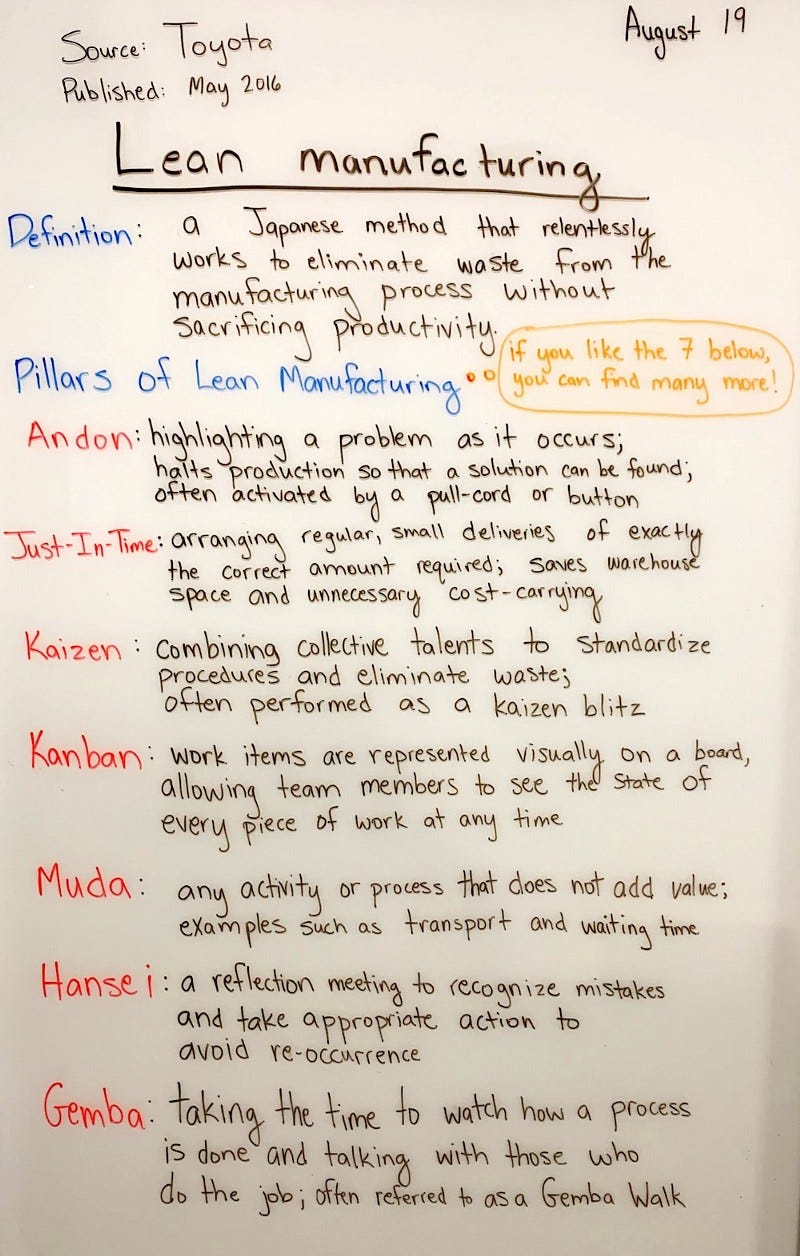 Source: Toyota
August 19
Published: May 2016
Lean manufacturing
Definition: a Japanese method that relentlessly
works to eliminate waste from the
manufacturing process without
sacrificing productivity.
if you like the 7 below,
you can find many more!
Pillars of Lean Manufacturing
Andon: highlighting a problem as it occurs;
halts production so that a solution can be found;
often activated by a pull-cord or button
Just-In-Time: arranging regular, small deliveries of exactly
the correct amount required; saves warehouse
space and unnecessary cost-carrying
Kaizen: combining collective talents to standardize
procedures and eliminate waste;
often performed as a kaizen blitz
Kanban: work items are represented visually on a board,
allowing team members to see the state of
every piece of work at any time
Muda: any activity or process that does not add value;
examples such as transport and waiting time
Hansei: a reflection meeting to recognize mistakes
and take appropriate action to
avoid re-occurrence
Gemba: taking the time to watch how a process
is done and talking with those who
do the job; often referred to as a Gemba Walk